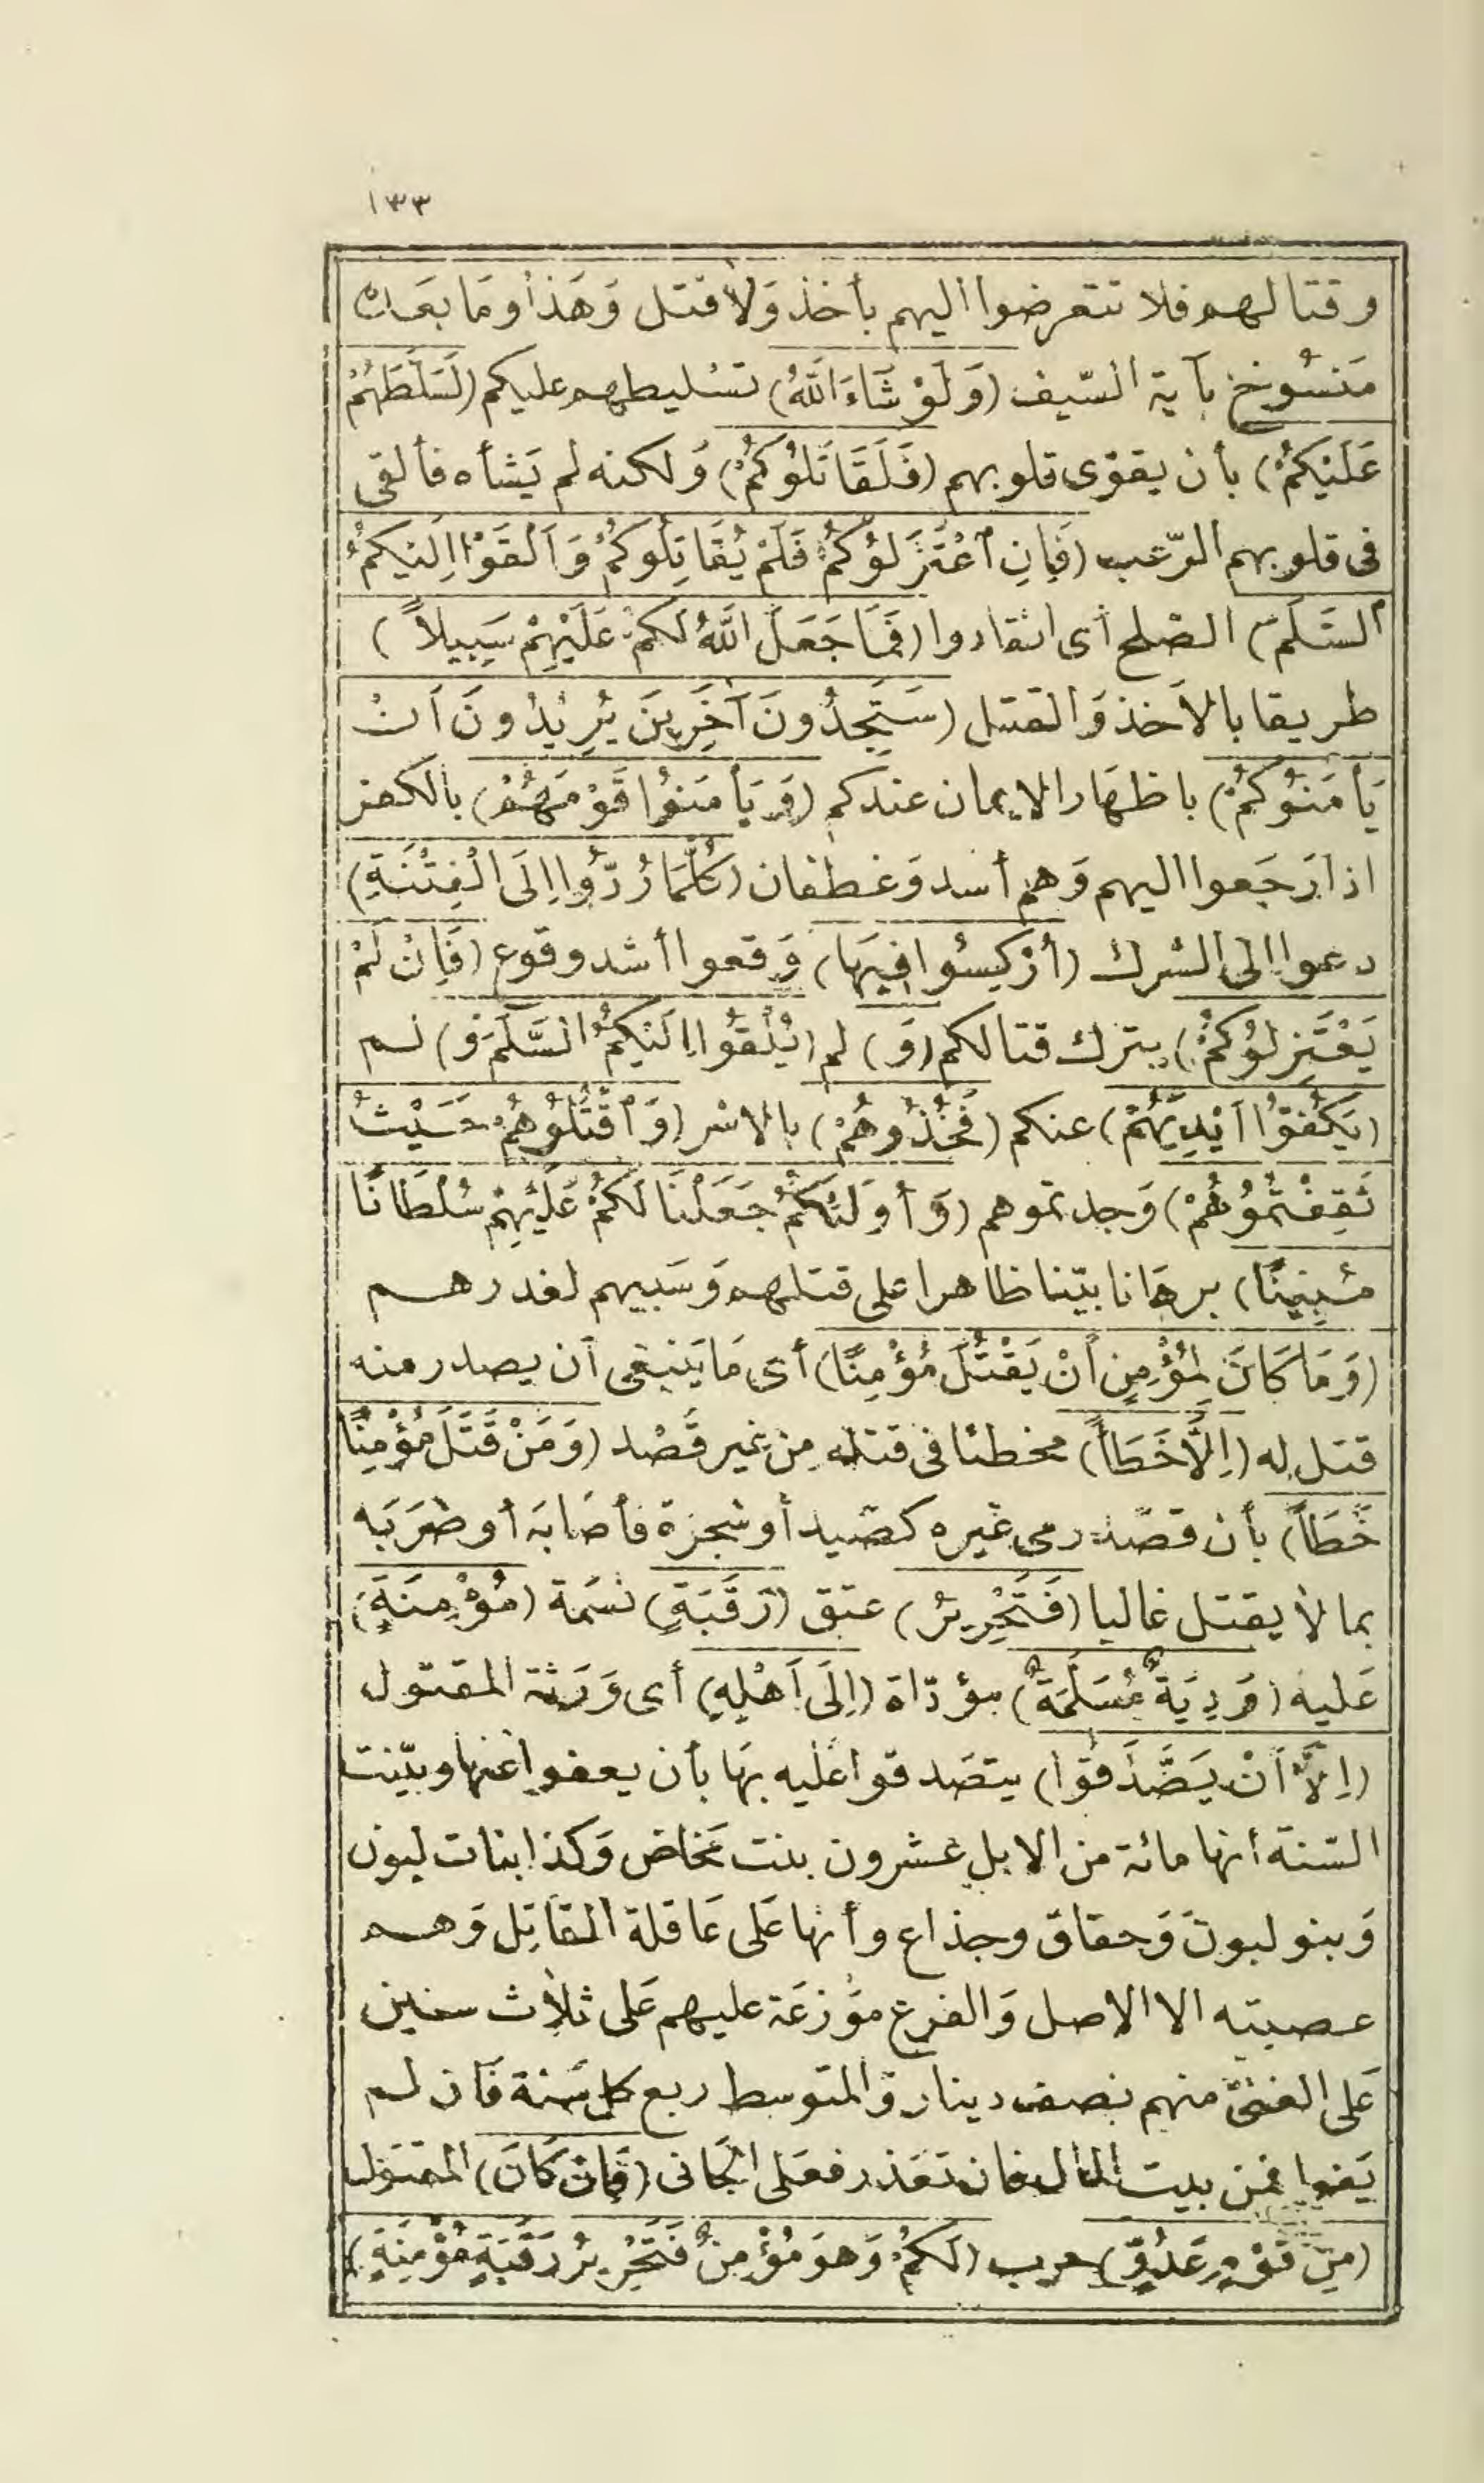 ١٣٣
وقتالهم فلا تتعرضوا اليهم بأخذ وَلا قتل وَهَذا وَمَا بعَده
مَنسُوخ بآية السّيف (وَلَوْ شَاءَ اللّٰهُ) تسْليطهم عليكم (لَسَلَّطَهُمْ
عَلَيْكُمْ) بأن يقوّى قلوبهم (فَلَقَاتَلُوكُمْ) وَلكنه لم يَشأه فألقى
فى قلوبهم الرّعب (فَاِنِ ٱعْتَزَلُوكُمْ فَلَمْ يُقَاتِلُوكُمْ وَاَلْقَوْا اِلَيْكُمُ
السَّلَمَ) الصّلح أى انقادوا (فَمَا جَعَلَ اللّٰهُ لَكُمْ عَلَيْهِمْ سَبِيلاً)
طريقا بالاَخذ وَالقتل (سَتَجِدُونَ آخَرِينَ يُرِيْدُونَ اَنْ
يَأمَنُوكُمْ) باظهَار الايمان عندكم (وَيَأمَنُوا قَوْمَهُمْ) بالكفر
اذا رَجَعوا اليهم وَهم أسد وَغطفان (كُلَّمَا رُدُّوا اِلَى الْفِتْنَةِ)
دعوا الى الشرك (أُرْكِسُوا فِيهَا) وَقعوا أشد وقوع (فَاِنْ لَمْ
يَعْتَزِلُوكُمْ) بترك قتالكم (وَ) لم (يُلْقُوا اِلَيْكُمُ السَّلَمَ وَ) لم
(يَكُفُّوا اَيْدِيَهُمْ) عنكم (فَخُذُوهُمْ) بالاسْر (وَٱقْتُلُوهُمْ حَيْثُ
ثَقِفْتُمُوُهُمْ) وَجدتموهم (وَأُولَئِكُمْ جَعَلْنَا لَكُمْ عَلَيْهِمْ سُلْطَانًا
مُبِينًا) برهَانا بيّنا ظاهرا على قتلهم وَسَبيهم لغدرهم
(وَمَا كَانَ لِمُؤْمِنٍ أَنْ يَقْتُلَ مُؤْمِنًا) أى مَا يَنبغى أن يصدر منه
قتل له (اِلَّا خَطَأً) مخطئا فى قتله مِن غير قَصْد (وَمَنْ قَتَلَ مُؤْمِنًا
خَطَأً) بأن قصَد رمى غيره كصَيد أو شجرة فأصَابَه أو ضرَبَه
بما لا يقتل غالبا (فَتَحْرِيْرُ) عتق (رَقَبَةٍ) نسَمة (مُؤْمِنَةٍ)
عَليه (وَدِيَةٌ مُسَلَّمَةٌ) مؤدّاة (اِلَى اَهْلِهِ) أى وَرَثة المقتول
(اِلَّا اَنْ يَصَّدَّقُوا) يتصَدقوا عَليه بهَا بأن يعفوا عنها وبيّنت
السّنة أنها مائة من الابل عشرون بنت مَخاض وَكذا بنات لبون
وَبنو لبون وَحقاق وجذاع وأنها عَلى عَاقلة القاتِل وَهم
عصبته الا الاصل وَالفرع موَزعَة عليهم عَلى ثلاث سنين
عَلى الغنىّ منهم نصف دينار وَالمتوسط ربع كل سَنة فَان لم
يَفوا فمن بيت المال فان تعَذر فعَلى الجَانى (فَاِنْ كَانَ) المقتول
(مِنْ قَوْمٍ عَدُوٍّ) حرب (لَكُمْ وَهوَ مُؤْمِنٌ فَتَحْرِيرُ رَقَبَةٍ مُؤْمِنَةٍ)